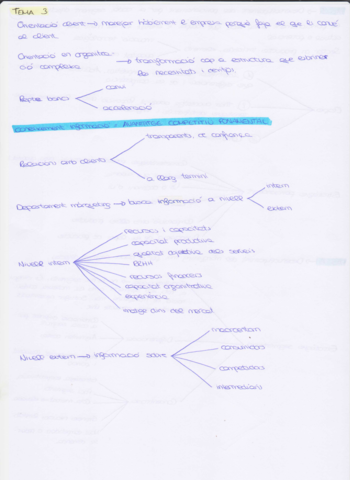 TEMA 3
Orientació client → manejar hàbilment l'empresa perquè faci el que li convé
al client.
Orientació en organitza-
ció complexa → transformació cap a estructura que
les necessitats i
Repte bàsic
canvi
acceleració
informació: AVANTATGE COMPETITIU FONAMENTAL
Relacions amb clients
transparents i de confiança
a llarg termini
Departament màrqueting → busca informació a nivell
intern
extern
Nivell intern
recursos i capacitats
capacitat productiva
qualitat objectiva dels serveis
RRHH
recursos financers
capacitat organitzativa
experiència
imatge dins del mercat
Nivell extern → informació sobre
macroentorn
consumidors
competidors
intermediaris